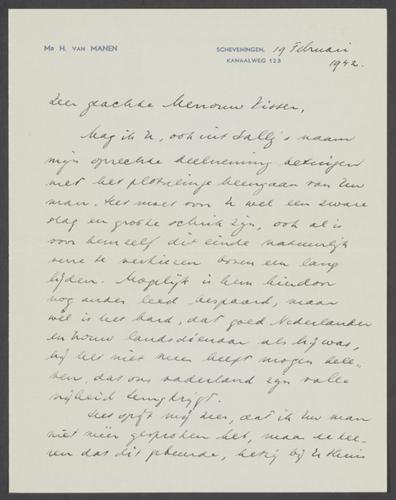 Mr H. VAN MANEN
SCHEVENINGEN, 19 Februari
KANAALWEG 123
1942.
Zeer geachte Mevrouw Visser,
Mag ik U, ook uit Sally's naam
mijn oprechte deelneming betuigen
met het plotselinge heengaan van Uw
man. Het moet voor U wel een zware
slag en groote schrik zijn, ook al is
voor hemzelf dit einde natuurlijk
verre te verkiezen boven een lang
lijden. Mogelijk is hem hierdoor
nog ander leed bespaard, maar
wel is het hard, dat goed Nederlander
en trouw landsdienaar als hij was,
hij het niet meer heeft mogen bele-
ven, dat ons vaderland zijn volle
vrijheid terugkrijgt.
Het spijt mij zeer, dat ik Uw man
niet meer gesproken heb, maar de kee-
ren dat dit gebeurde, hetzij bij U thuis